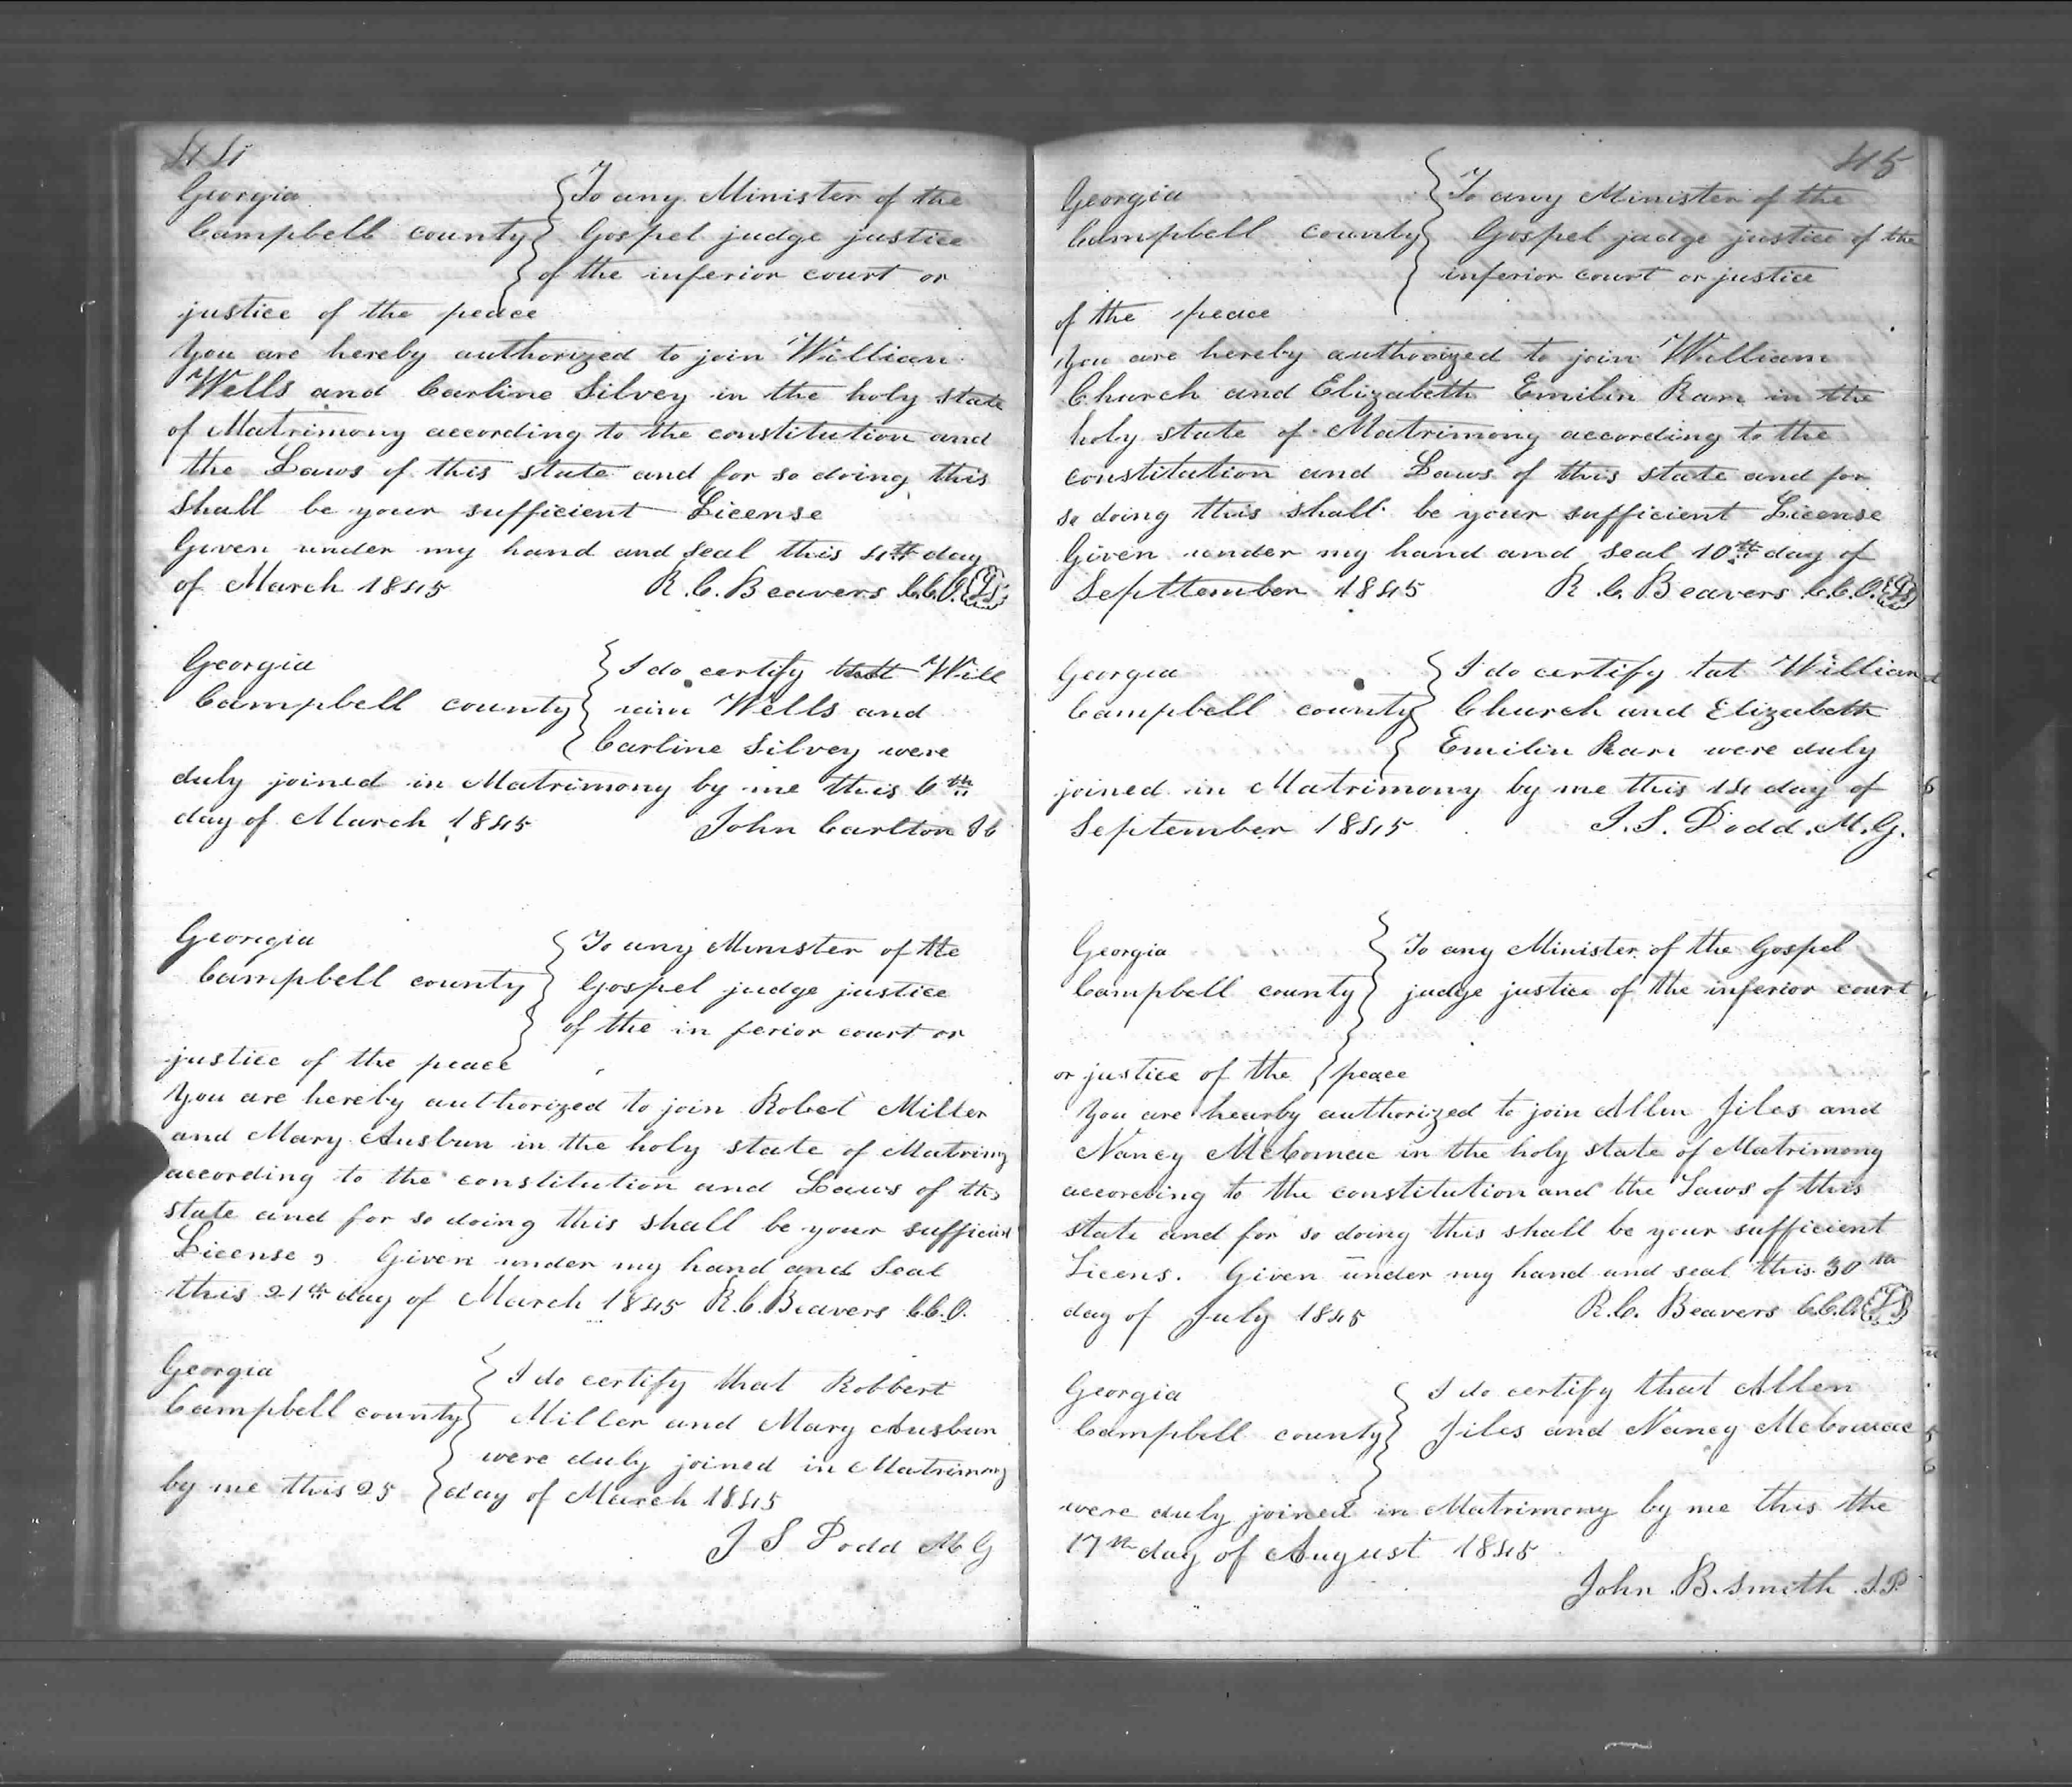 44
Georgia
Campbell county
To any Minister of the
Gospel judge justice
of the inferior court or
justice of the peace
You are hereby authorized to join William
Wells and Carline Silvey in the holy state
of Matrimony according to the constitution and
the Laws of this state and for so doing this
shall be your sufficient License
Given under my hand and seal this 4th day
of March 1845 R. C. Beavers C.C.O. LS
Georgia
Campbell county
I do certify that Will
iam Wells and
Carline Silvey were
duly joined in Matrimony by me this 6th
day of March 1845 John Carlton
Georgia
Campbell county
To any Minister of the
Gospel judge justice
of the in ferior court or
justice of the peace
You are hereby authorized to join Robet Miller
and Mary Ausbun in the holy state of Matrimy
according to the constitution and Laws of this
state and for so doing this shall be your sufficient
License, Given under my hand and Seal
this 21th day of March 1845 R.C. Beavers C.C.O.
Georgia
Campbell county
I do certify that Robbert
Miller and Mary Ausbun
were duly joined in Matrimony
by me this 25 day of March 1845
J S Dodd M G
45
Georgia
Campbell county
To any Minister of the
Gospel judge justice of the
inferior court or justice
of the peace
You are hereby authorized to join William
Church and Elizabeth Emilin in the
holy state of Matrimony according to the
constitution and Laws of this state and for
so doing this shall be your sufficient License
Given under my hand and seal 10th day of
Septtember 1845 R. C. Beavers C.C.O. LS
Georgia
Campbell county
I do certify tat William
Church and Elizabeth
Emilin were duly
joined in Matrimony by me this 14 day of
September 1845 J. S. Dodd. M.G.
Georgia
Campbell county
To any Minister of the Gospel
judge justice of the inferior court
or justice of the peace
You are hearby authorized to join Allen Jiles and
Nancy McComac in the holy state of Matrimony
according to the constitution and the Laws of this
state and for so doing this shall be your sufficient
Licens. Given under my hand and seal this 30th
day of July 1845 R.C. Beavers C.C.O. LS
Georgia
Campbell county
I do certify that Allen
Jiles and Nancy McComac
were duly joined in Matrimony by me this the
17th day of August 1845
John B. Smith J.P.